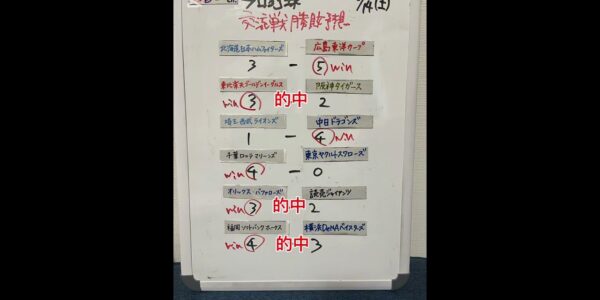 プロ野球 6/14(土)
交流戦勝敗予想
北海道日本ハムファイターズ 広島東洋カープ
3 - 5 win
東北楽天ゴールデンイーグルス 阪神タイガース
win 3 的中 2
埼玉西武ライオンズ 中日ドラゴンズ
1 - 4 win
千葉ロッテマリーンズ 東京ヤクルトスワローズ
win 4 - 0
オリックス・バファローズ 読売ジャイアンツ
win 3 的中 2
福岡ソフトバンクホークス 横浜DeNAベイスターズ
win 4 的中 3